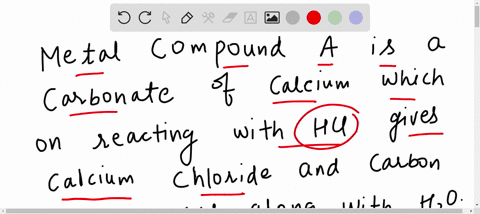 Metal Compound A is a
Carbonate of Calcium which
on reacting with HCl gives
Calcium Chloride and Carbon
along with H₂O.